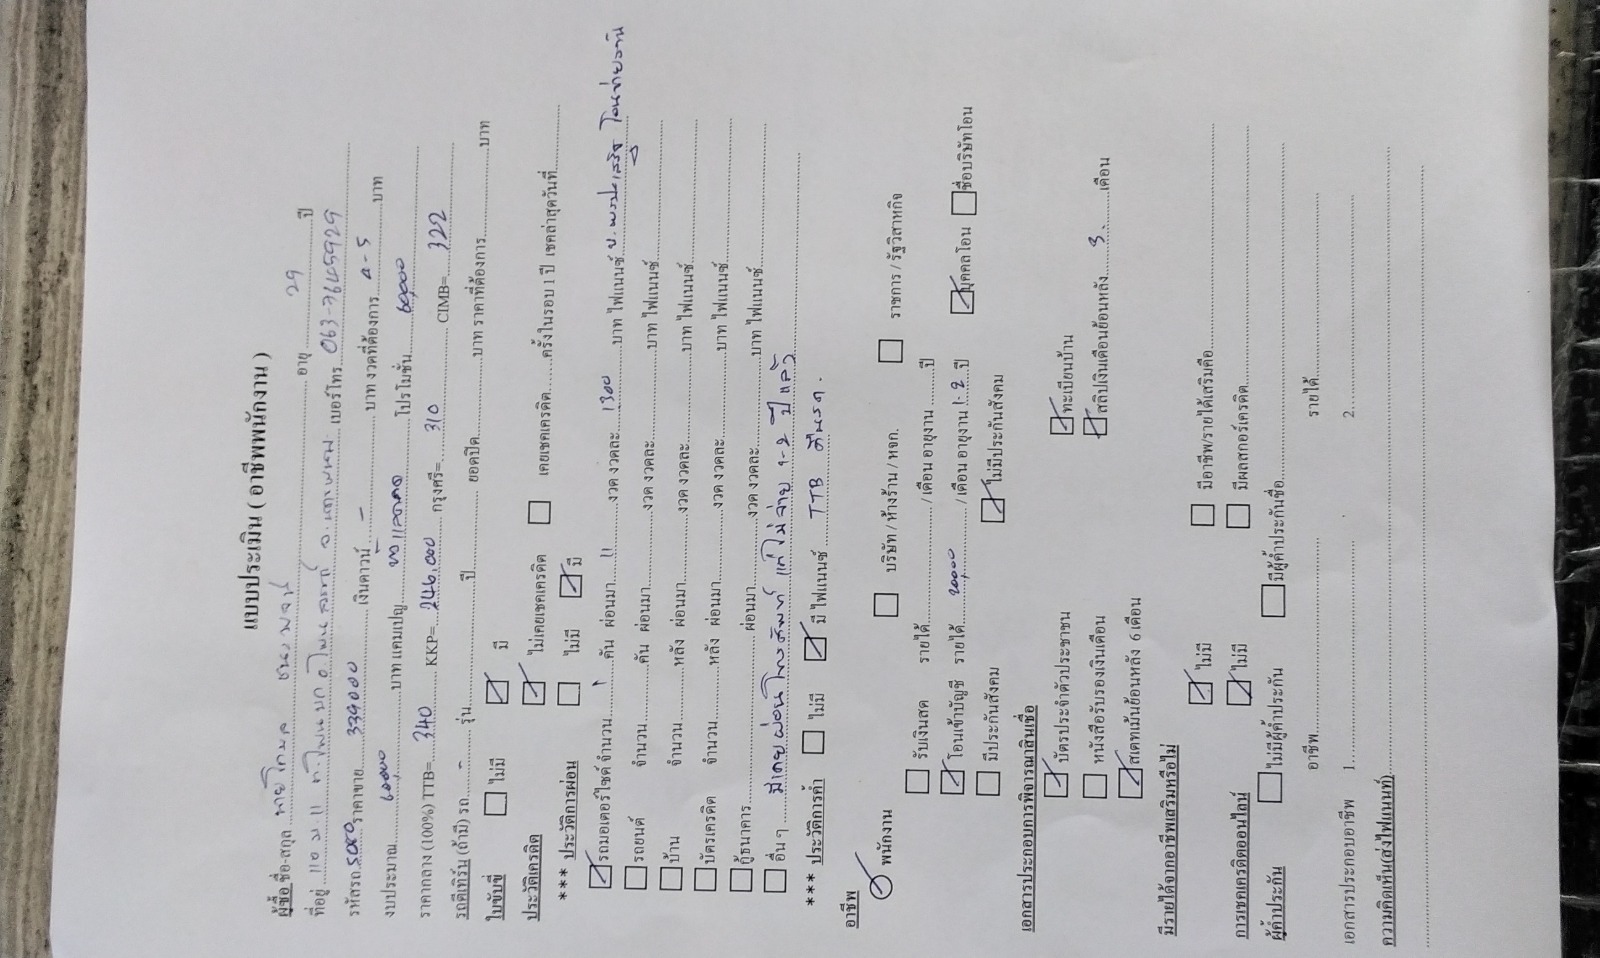 แบบประเมิน ( อาชีพพนักงาน )
ผู้ซื้อ ชื่อ-สกุล นายโกมล อายุ 29 ปี
ที่อยู่ 110 ม.11 เบอร์โทร. 063-7645929
รหัสรถ 5080 ราคาขาย 339000 เงินดาวน์ - บาท งวดที่ต้องการ บาท
งบประมาณ 60,000 บาท แคมเปญ โปรโมชั่น 60,000
ราคากลาง (100%) TTB= 340 KKP= 246,000 กรุงศรี= 310 CIMB= 322
รถตีเทิร์น (ถ้ามี) รถ - รุ่น ปี ยอดปิด บาท ราคาที่ต้องการ บาท
ใบขับขี่ ไม่มี มี
ประวัติเครดิต ไม่เคยเชคเครดิต เคยเชคเครดิต ครั้งในรอบ 1 ปี เชคล่าสุดวันที่
*** ประวัติการผ่อน ไม่มี มี
รถมอเตอร์ไซค์ จำนวน 1 คัน ผ่อนมา 11 งวด งวดละ 1300 บาท ไฟแนนซ์
รถยนต์ จำนวน คัน ผ่อนมา งวด งวดละ บาท ไฟแนนซ์
บ้าน จำนวน หลัง ผ่อนมา งวด งวดละ บาท ไฟแนนซ์
บัตรเครดิต จำนวน หลัง ผ่อนมา งวด งวดละ บาท ไฟแนนซ์
กู้ธนาคาร ผ่อนมา งวด งวดละ บาท ไฟแนนซ์
อื่น ๆ มีเคยผ่อนโทรศัพท์ แต่ไม่จ่าย 1-2 ปี แล้ว
*** ประวัติการค้ำ ไม่มี มี ไฟแนนซ์ TTB
อาชีพ
พนักงาน บริษัท / ห้างร้าน / หจก. ราชการ / รัฐวิสาหกิจ
รับเงินสด รายได้ / เดือน อายุงาน ปี
โอนเข้าบัญชี รายได้ 20,000 / เดือน อายุงาน 1-2 ปี บุคคลโอน ชื่อบริษัทโอน
มีประกันสังคม ไม่มีประกันสังคม
เอกสารประกอบการพิจารณาสินเชื่อ
บัตรประจำตัวประชาชน ทะเบียนบ้าน
หนังสือรับรองเงินเดือน สลิปเงินเดือนย้อนหลัง 3 เดือน
สเตทเม้นย้อนหลัง 6 เดือน
มีรายได้จากอาชีพเสริมหรือไม่ ไม่มี มีอาชีพ/รายได้เสริมคือ
การเชคเครดิตออนไลน์ ไม่มี มีผลสกอร์เครดิต
ผู้ค้ำประกัน ไม่มีผู้ค้ำประกัน มีผู้ค้ำประกันชื่อ
อาชีพ รายได้
เอกสารประกอบอาชีพ 1. 2.
ความคิดเห็น(ส่งไฟแนนท์)